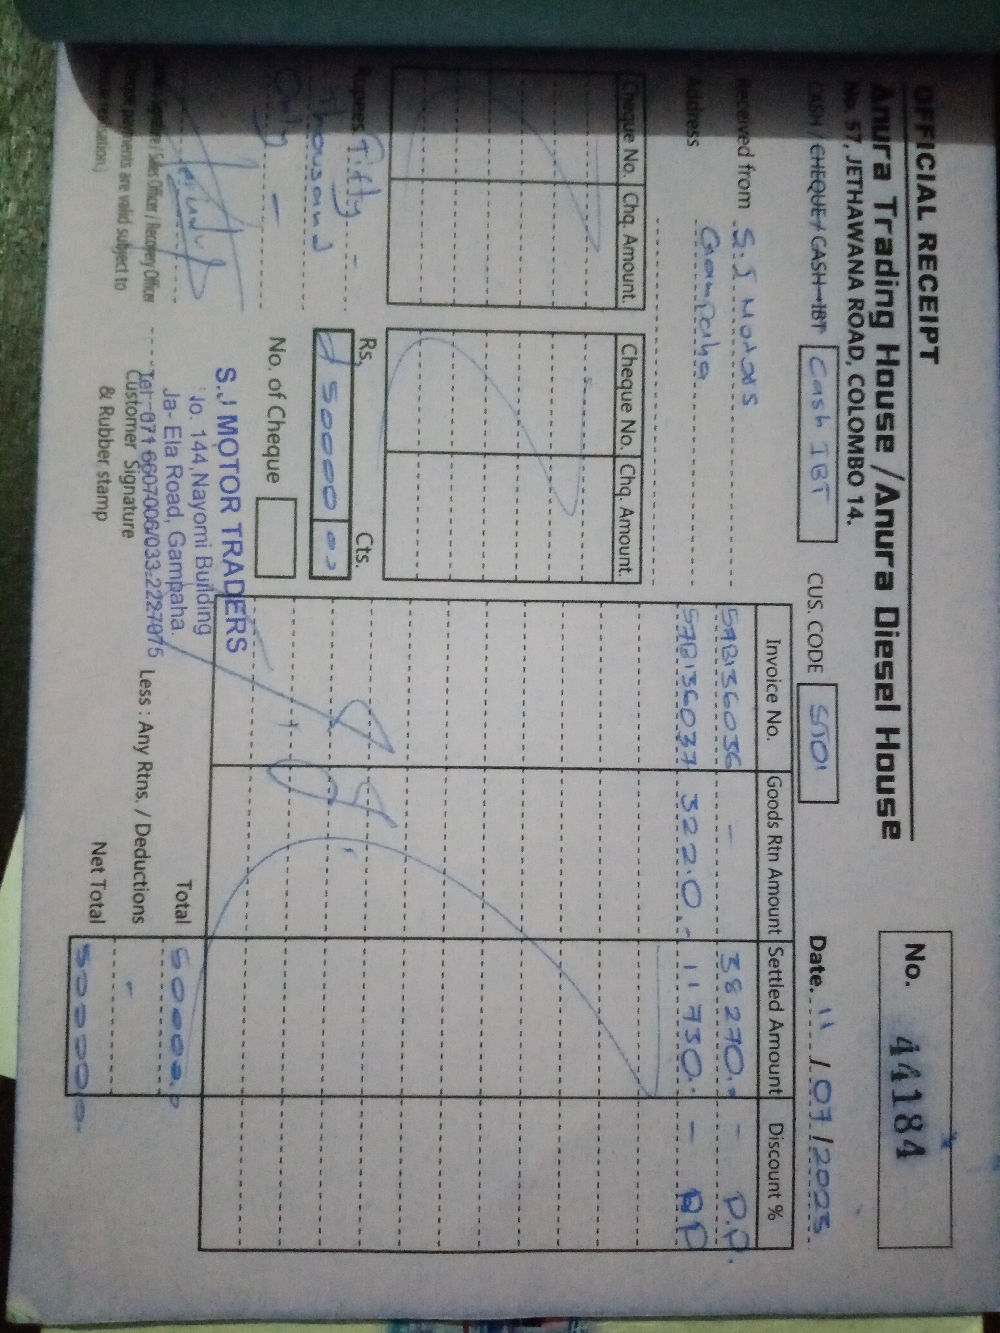 OFFICIAL RECEIPT
Anura Trading House /Anura Diesel House
No. 57, JETHAWANA ROAD, COLOMBO 14.
No. 44184
CASH / CHEQUE / CASH IBT Cash IBT
CUS. CODE
Date. 11 / 07 / 2023
Received from S.J Motors
Address Gampaha
Cheque No. Chq. Amount. Cheque No. Chq. Amount.
Invoice No. Goods Rtn Amount Settled Amount Discount %
57B136036 - 38270.- - D.P.
57B136037 3220.- 11730.- - DP
Rupees. Fifty -
Thousand
Only -
Rs. Cts.
50000 00
No. of Cheque
S.J MOTOR TRADERS
No. 144, Nayomi Building
Ja- Ela Road, Gampaha.
Tel:-071 6607006/033-2227075
Customer Signature
& Rubber stamp
/ Sales Officer / Recovery Officer
payments are valid subject to
Total 50000.
Less : Any Rtns. / Deductions -
Net Total 50000.